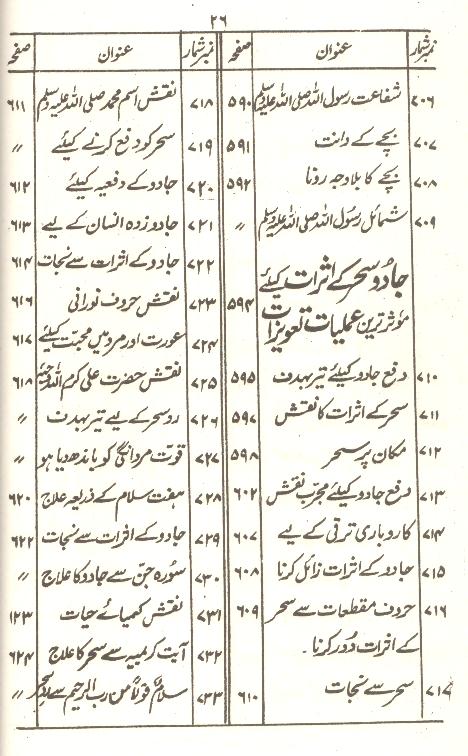 ۲۶
نمبرشمار عنوان صفحہ
۷۰۶ شفاعت رسول اللہ صلی اللہ علیہ وسلم ۵۹۰
۷۰۷ بچے کے دانت ۵۹۱
۷۰۸ بچے کا بلا وجہ رونا ۵۹۲
۷۰۹ شمائل رسول اللہ صلی اللہ علیہ وسلم ״
جادو سحر کے اثرات کیلئے
مؤثر ترین عملیات تعویزات ۵۹۴
۷۱۰ دفع جادو کیلئے تیر بہدف ۵۹۵
۷۱۱ سحر کے اثرات کا نقش ۵۹۷
۷۱۲ مکان پر سحر ۵۹۸
۷۱۳ دفع جادو کیلئے مجرب نقش ۶۰۲
۷۱۴ کاروباری ترقی کے لیے ۶۰۷
۷۱۵ جادو کے اثرات زائل کرنا ۶۰۸
۷۱۶ حروف مقطعات سے سحر ۶۰۹
کے اثرات دور کرنا۔
۷۱۷ سحر سے نجات ۶۱۰
نمبرشمار عنوان صفحہ
۷۱۸ نقش اسم محمد صلی اللہ علیہ وسلم ۶۱۱
۷۱۹ سحر کو دفع کرنے کیلئے ״
۷۲۰ جادو کے دفعیہ کیلئے ۶۱۲
۷۲۱ جادو زدہ انسان کے لیے ۶۱۳
۷۲۲ جادو کے اثرات سے نجات ۶۱۴
۷۲۳ نقش حروف نورانی ۶۱۶
۷۲۴ عورت اور مرد میں محبت کیلئے ۶۱۷
۷۲۵ نقش حضرت علی کرم اللہ وجہہ ۶۱۸
۷۲۶ رد سحر کے لیے تیر بہدف ״
۷۲۷ قوت مردانگی کو باندھ دیا ہو ״
۷۲۸ ہفت سلام کے ذریعہ علاج ۶۲۰
۷۲۹ جادو کے اثرات سے نجات ۶۲۲
۷۳۰ سورہ جن سے جادو کا علاج ״
۷۳۱ نقش کیمیائے حیات ۶۲۳
۷۳۲ آیت کریمہ سے سحر کا علاج ۶۲۴
۷۳۳ سلام قولا من رب الرحیم سے رد سحر ״